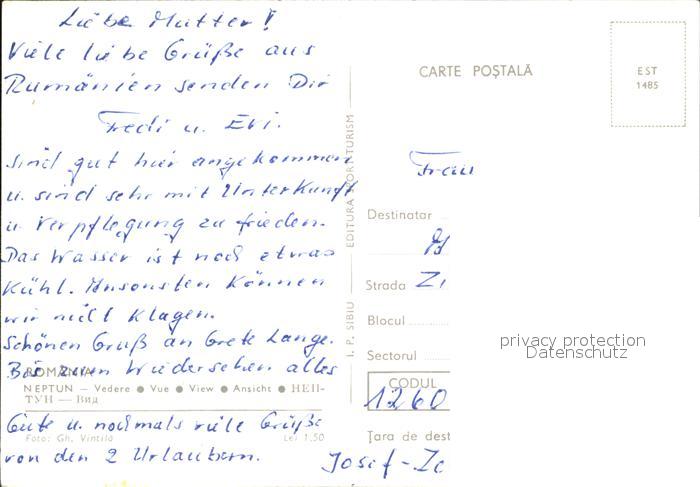 Liebe Mutter!
Viele liebe Grüße aus
Rumänien senden Dir
Fredi u. Evi.
sind gut hier angekommen
u. sind sehr mit Unterkunft
u. Verpflegung zufrieden.
Das Wasser ist noch etwas
Kühl. Ansonsten können
wir nicht klagen.
Schönen Gruß an Grete Lange.
Bis zum Wiedersehen alles
ROMÂNIA
NEPTUN – Vedere ● Vue ● View ● Ansicht ● НЕП-
ТУН — Вид
Gute u. nochmals viele Grüße
Foto: Gh. Vintilă
Lei 1,50
von den 2 Urlaubern.
I. P. SIBIU
EDITURA SPORT-TURISM
CARTE POȘTALĂ
EST
1485
Frau
Destinatar
Strada
Blocul
Sectorul
privacy protection
Datenschutz
CODUL
1260
Țara de dest
Josef-